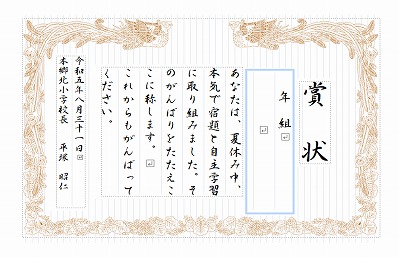 賞状
年　組
あなたは、夏休み中、
本気で宿題と自主学習
に取り組みました。そ
のがんばりをたたえこ
こに称します。
これからもがんばって
ください。
令和五年八月三十一日
本郷北小学校長　平塚　昭仁